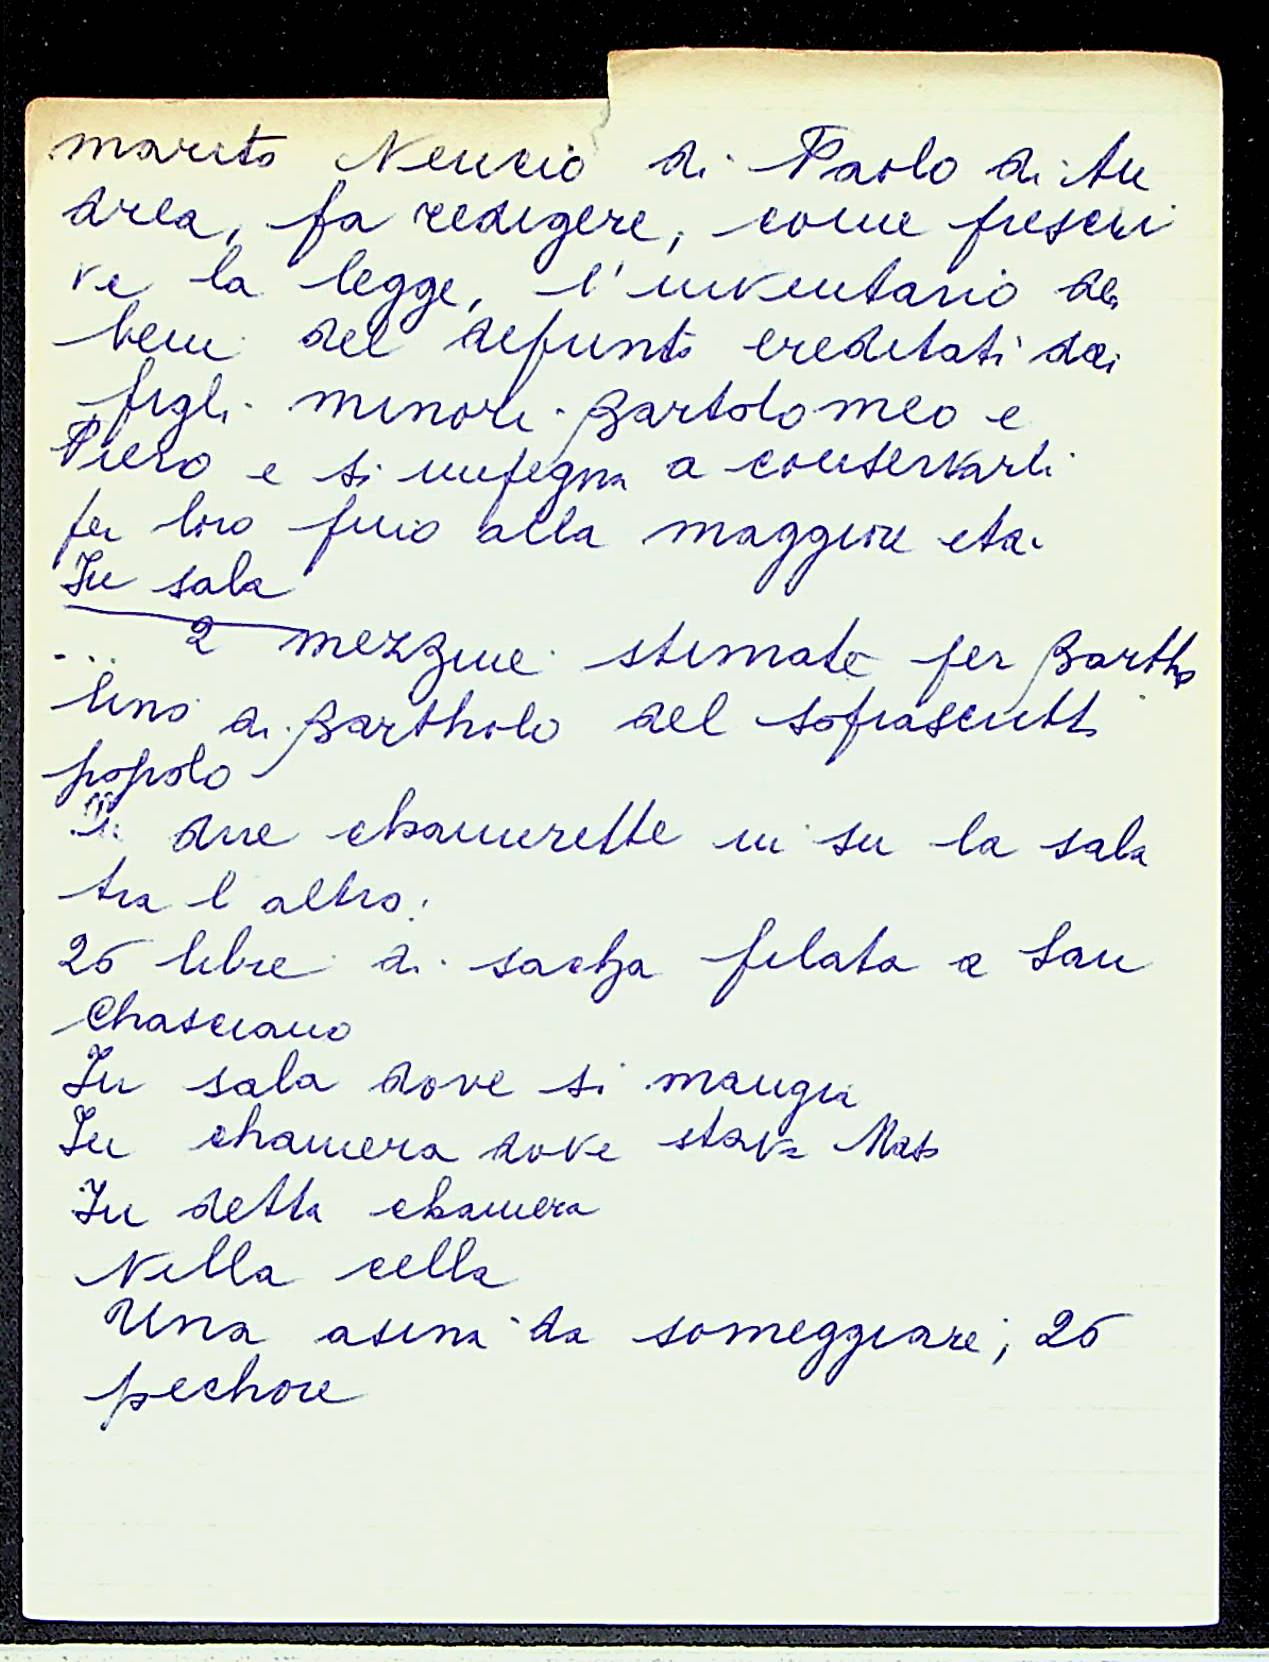 marito Nencio di Paolo di An
drea, fa redigere, come prescri
ve la legge, l'inventario dei
beni del defunto ereditati dai
figli minori Bartolomeo e
Piero e si impegna a conservarli
per loro fino alla maggiore età.
In sala
... 2 mezzine stimate per Bartho
lino di Bartholo del soprascritto
popolo
In due chamerette in su la sala
tra l altro:
25 libre di sacha filata a San
Chasciano
In sala dove si mangia
In chamera dove stava Maso
In detta chamera
Nella cella
Una asina da someggiare; 25
pechore